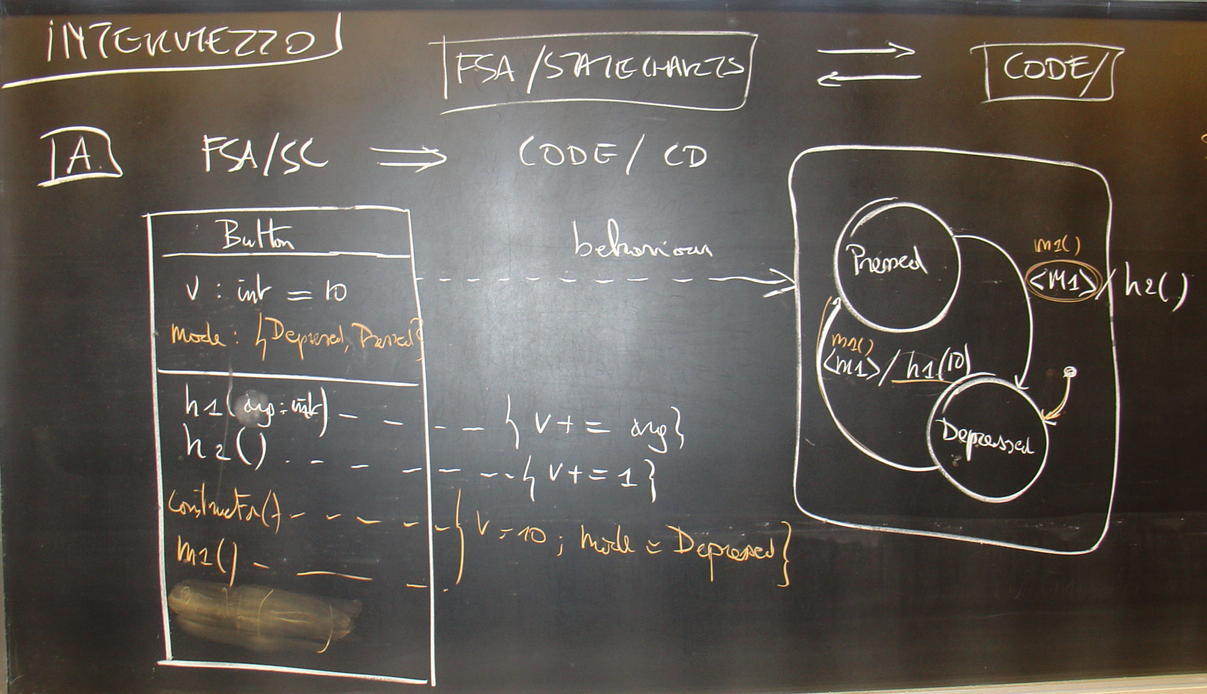 INTERMEZZO
FSA/STATECHARTS ⇄ CODE/
A. FSA/SC ⇒ CODE/ CD
Button
v : int = 10
mode : {Depressed, Pressed}
h1(arg: int) - - - - {v += arg}
h2() - - - - {v += 1}
constructor() - - - - {v = 10; mode = Depressed}
m1() - - -
behaviour
Pressed
m1()
<M1>/h2()
m1()
<m1>/h1(10)
Depressed